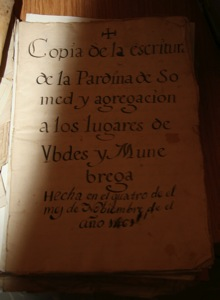 Copia de la escritur
de la Pardina de So
med y agregacion
a los lugares de
Ybdes y Mune
brega
Hecha en el quatro de el
mes de Nobiembre de el
año